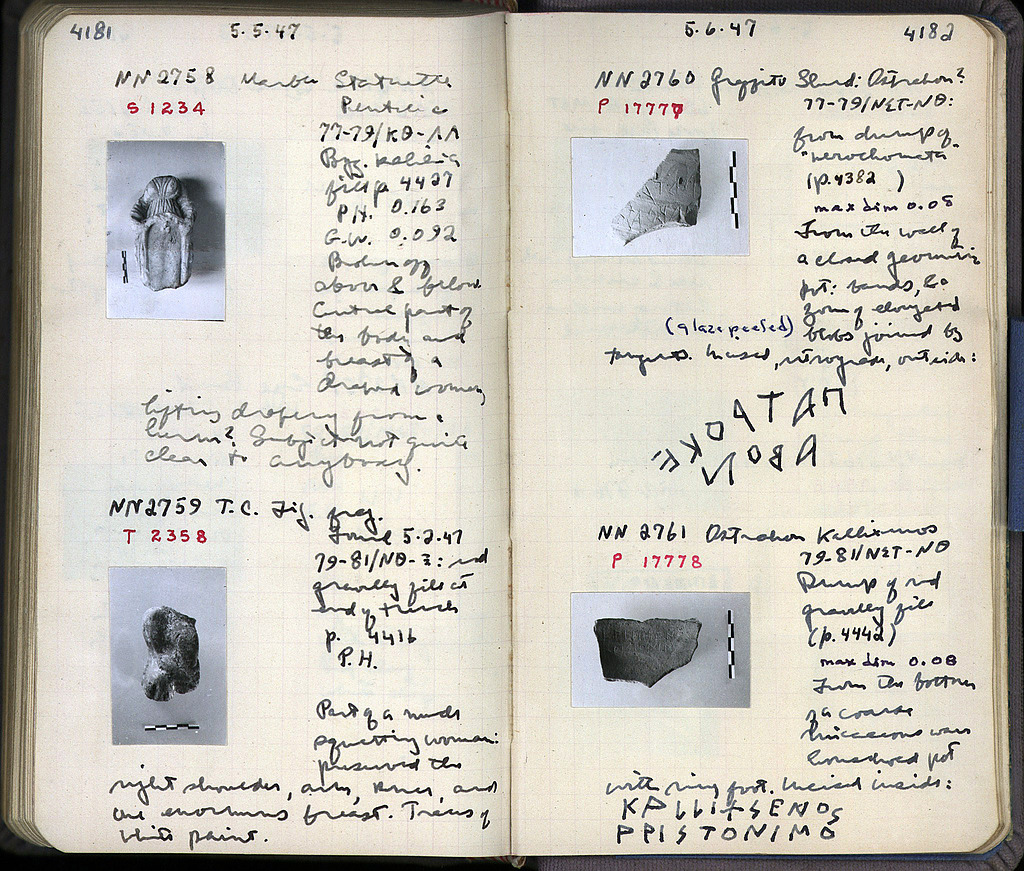 4181
5.5.47
NN 2758 Marble Statuette
S 1234
Pentelic
77-79/ΚΘ-ΛΛ
Byz.
fill p. 4427
P.H. 0.163
G.W. 0.092
Broken off
above & below
Central part of
the body and
breast of a
draped woman
lifting drapery from a
herm? Subject not quite
clear to anybody.
NN2759 T.C. Fig. frag.
T 2358
Found 5.2.47
79-81/ΝΘ-Ξ: red
gravelly fill at
end of trench
p. 4416
P.H.
Part of a nude
squatting woman:
preserved the
right shoulder, arm, knee, and
one enormous breast. Traces of
white paint.
5.6.47
4182
NN 2760 Graffito Sherd: Ostrakon?
P 17777
77-79/ΝΣΤ-ΝΘ:
from dump of
(p. 4382 )
max dim 0.08
From the wall of
a closed geometric
pot: bands, &
zone of elongated
(glaze peeled) blobs joined by
tangents. Incised, retrograde, outside:
79-81/ΝΣΤ-ΝΘ
NN 2761 Ostrakon Kallixenos
P 17778
Dump of red
gravelly fill
(p. 4442)
max dim 0.08
From the bottom
of a coarse
micaceous ware
household pot
with ring foot. Incised inside: